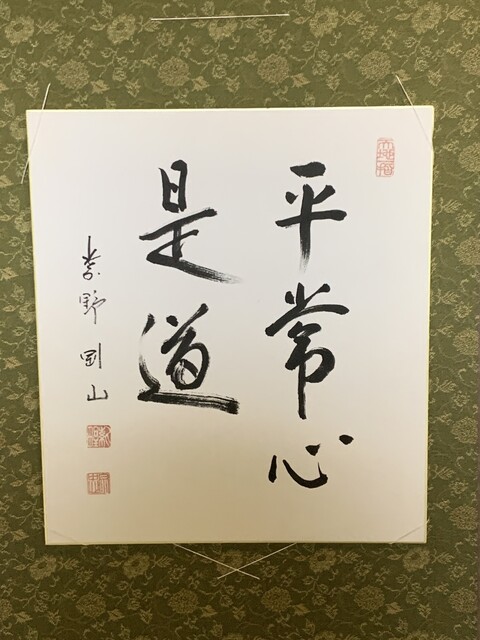 平常心
是道
野剛山